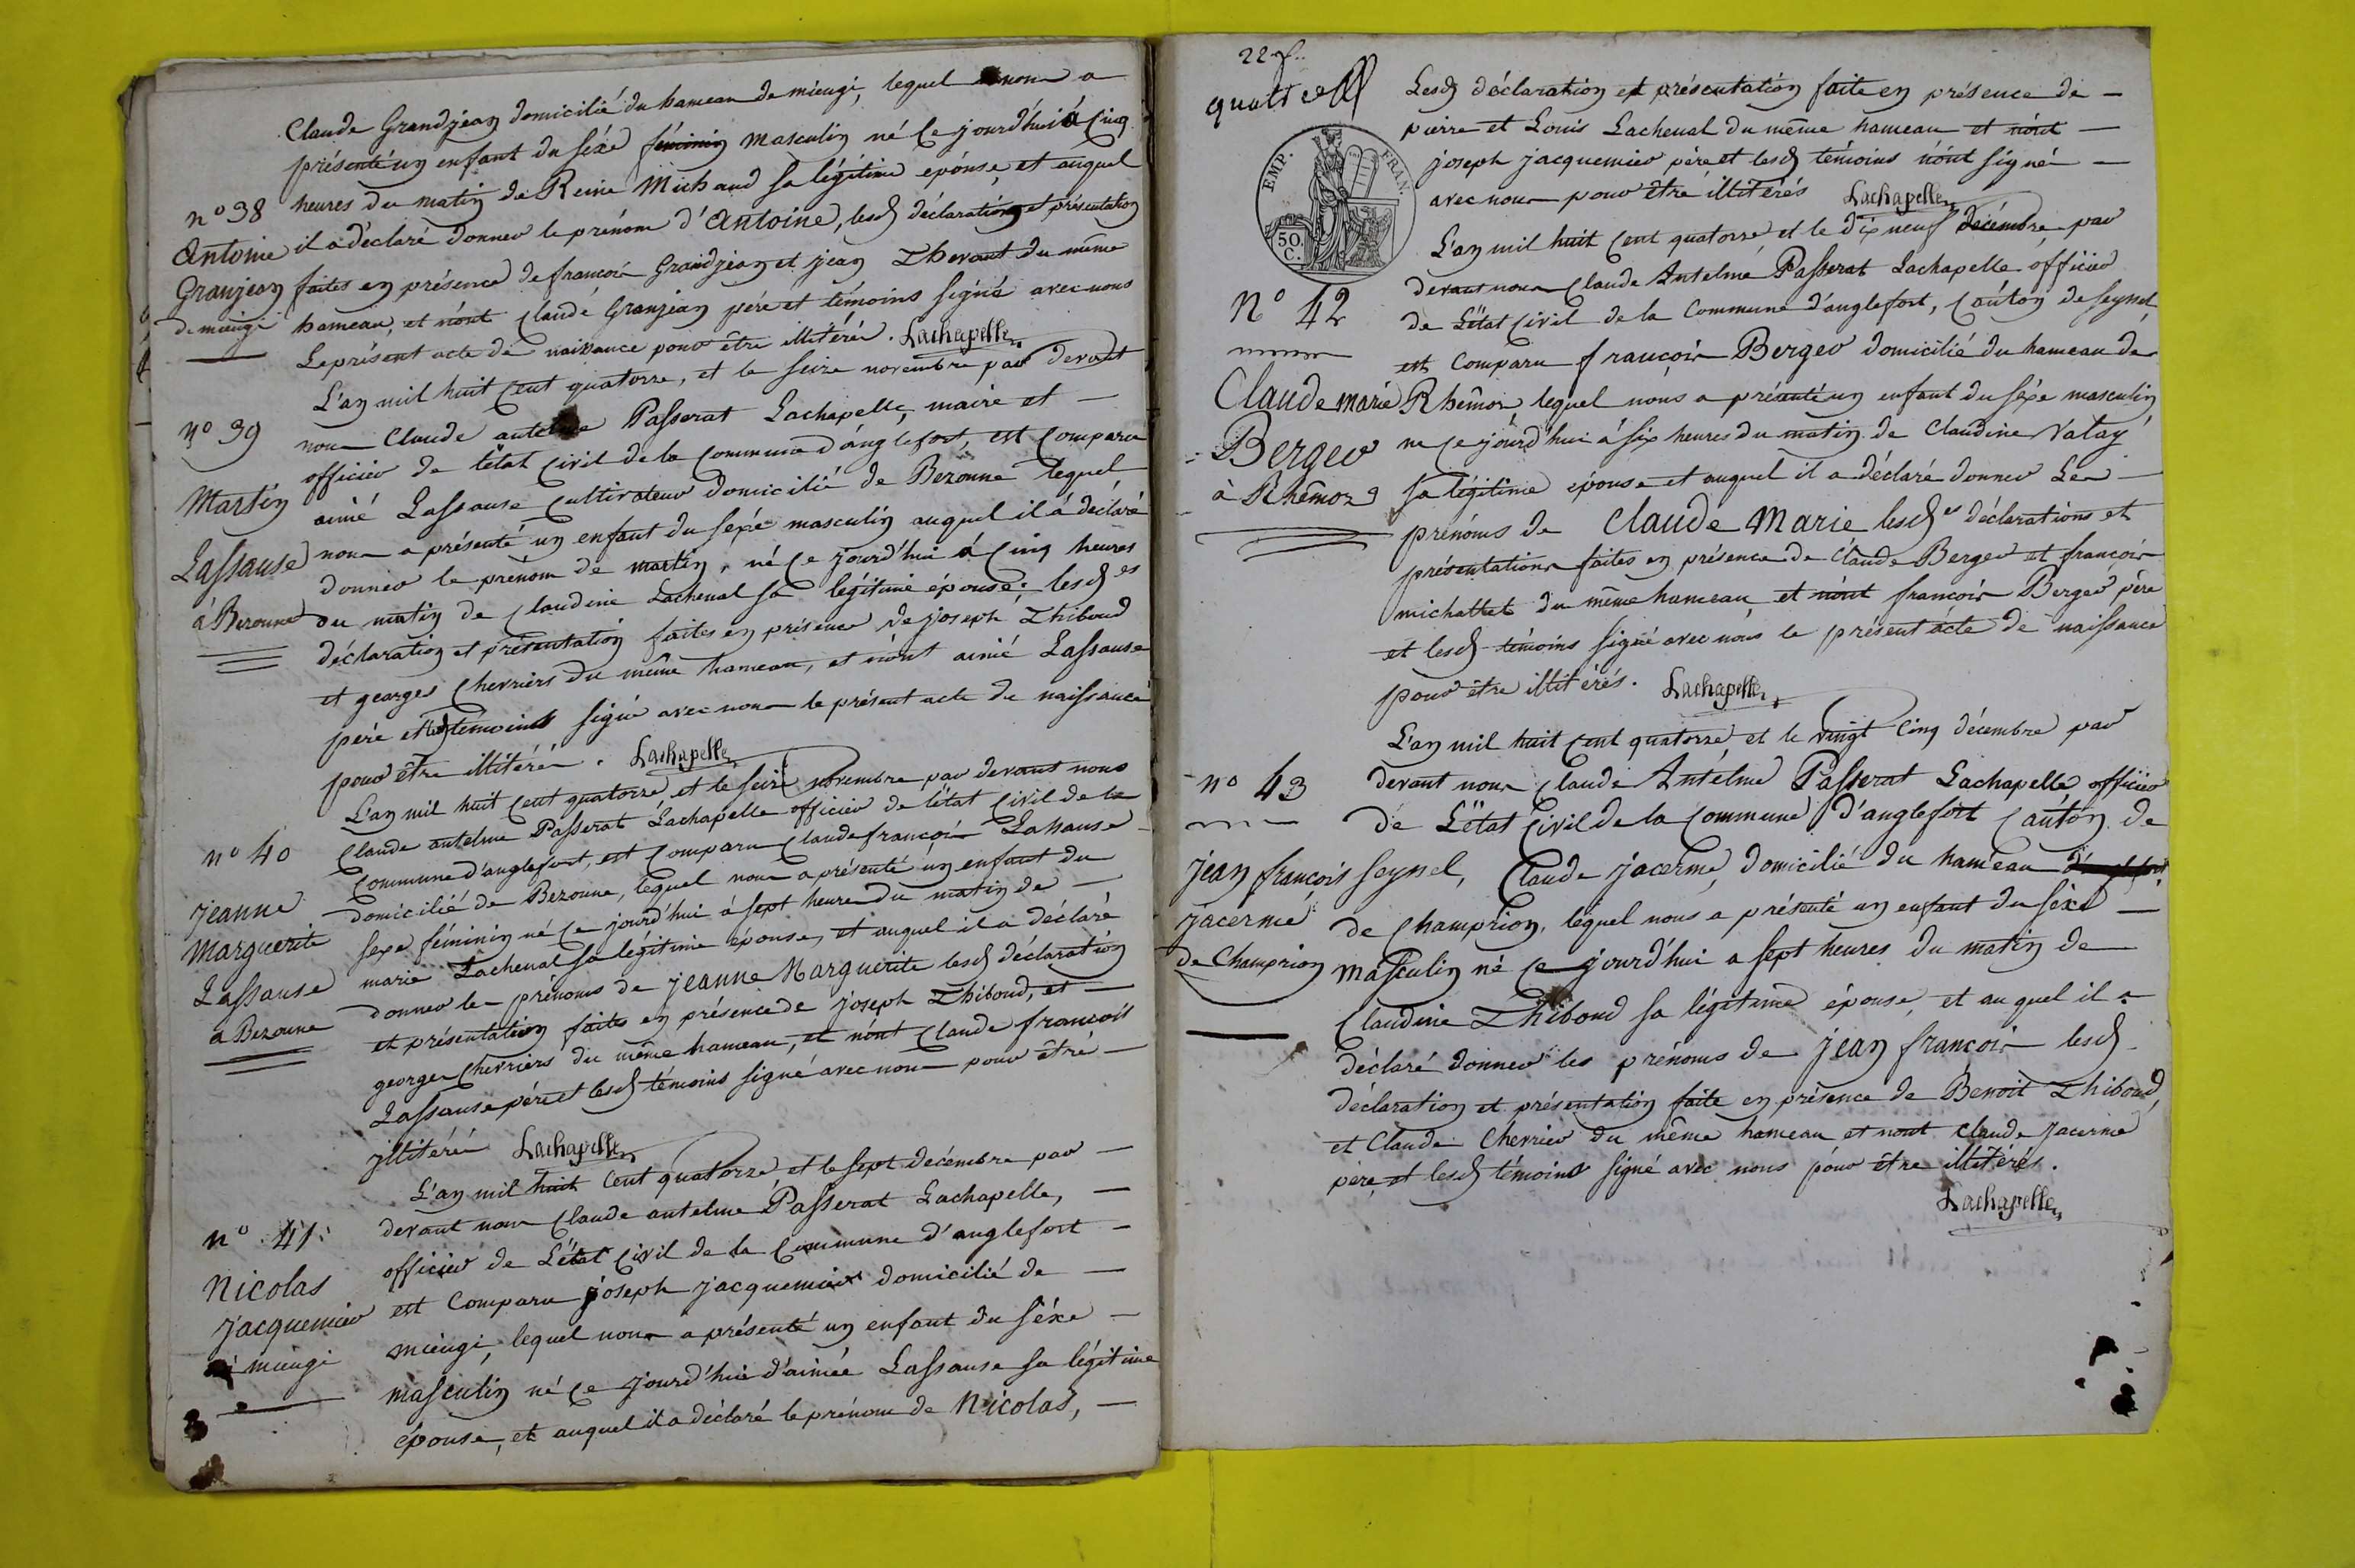 Claude Grandjean domicilié du hameau de mieugi, lequel nous a
présenté un enfant du séxe féminin masculin né ce jourd'hui à cinq
n° 38 heures du matin de Reine Michaud sa légitime epouse, et auquel
Antoine il a déclaré donner le prénom d'Antoine, lesd déclaration et présentation
Granjean faites en présence de françois Grandjean et jean Thevant du même
de mieugi hameau, et n'ont Claude Granjean père et témoins signé avec nous
Le présent acte de naissance pour être illitérés. Lachapelle
L'an mil huit cent quatorze, et le seize novembre par devant
n° 39 nous Claude antelme Passerat Lachapelle, maire et
officier de l'état civil de la commune d'anglefort, est comparu
Martin aimé Lassause cultivateur domicilié de Bezonne lequel
Lassause nous a présenté un enfant du sexe masculin auquel il a déclaré
donner le prénom de martin, né ce jourd'hui à cinq heures
à Bezonne du matin de Claudine Lachenal sa légitime épouse; lesd es
déclaration et présentation faites en présence de joseph Thiboud
et georges Cherriers du même hameau, et n'ont aimé Lassause
père et lesd témoins signé avec nous le présent acte de naissance
pour être illitérés. Lachapelle
L'an mil huit cent quatorze et le seize novembre par devant nous
Claude antelme Passerat Lachapelle officier de l'état civil de la
n° 40 commune d'anglefort, est comparu Claude françois Lassause
domicilié de Bezonne, lequel nous a présenté un enfant du
jeanne sexe féminin né ce jourd'hui à sept heures du matin de
Marguerite marie Lachenal sa légitime épouse, et auquel il a déclaré
Lassause donner les prénoms de jeanne Marguerite lesd déclaration
a Bezonne et présentation faites en présence de joseph Thiboud, et
georges Cherriers du même hameau, et n'ont Claude françois
Lassause père et lesd témoins signé avec nous pour être
illitérés Lachapelle
L'an mil huit cent quatorze, et le sept decémbre par
n° 41: devant nous Claude antelme Passerat Lachapelle,
officier de L'état civil de la commune d'anglefort
Nicolas est comparu joseph jacquemier domicilié de
jacquemier mieugi, lequel nous a présenté un enfant du séxe
mieugi masculin né ce jourd'hui d'aimée Lassause sa légitime
épouse, et auquel il a déclaré le prénom de Nicolas,
quatre
Lesd déclaration et présentation faite en présence de
pierre et Louis Lachenal du même hameau et n'ont
joseph jacquemier père et lesd témoins n'ont signé
EMP. FRAN.
50. C.
avec nous pour être illitérés Lachapelle
L'an mil huit cent quatorze et le dix neuf decémbre par
devant nous Claude Antelme Passerat Lachapelle officier
N° 42 de L'état civil de la commune d'anglefort, canton de seyssel
est comparu françois Berger domicilié du hameau de
Claude marie Rhêmoz, lequel nous a présenté un enfant du séxe masculin
Berger né ce jourd'hui à six heures du matin de Claudine Vatay
à Rhêmoz sa légitime épouse et auquel il a déclaré donner Les
prénoms de Claude Marie lesd es déclarations et
présentations faites en présence de Claude Berger et françois
michallet du même hameau, et n'ont françois Berger père
et lesd témoins signé avec nous le présent acte de naissance
pour être illitérés. Lachapelle
L'an mil huit cent quatorze et le vingt cinq décembre par
n° 43 devant nous Claude Antelme Passerat Lachapelle officier
de L'état civil de la commune d'anglefort canton de
jean françois seyssel, Claude jacerme, domicilié du hameau d'anglefort
jacerme de Champrion, lequel nous a présenté un enfant du séxe
de Champrion masculin né ce jourd'hui a sept heures du matin de
Claudine Thiboud sa légitime épouse, et auquel il a
déclaré donner les prénoms de jean françois lesd
déclaration et présentation faite en présence de Benoit Thiboud,
et Claude Cherrier du même hameau et n'ont Claude jacerme
père, et lesd témoins signé avec nous pour être illitérés.
Lachapelle